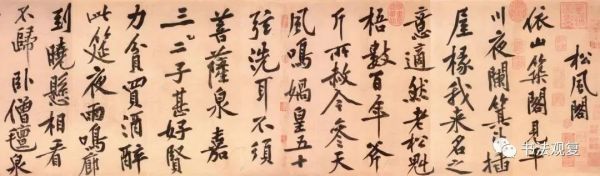 松風閣
依山築閣見平
川夜闌箕斗插
屋椽我來名之
意適然老松魁
梧數百年斧
斤所赦今參天
風鳴媧皇五十
弦洗耳不須
菩薩泉嘉
三二子甚好賢
力貧買酒醉
此筵夜雨鳴廊
到曉懸相看
不歸臥僧氈泉
书法观复